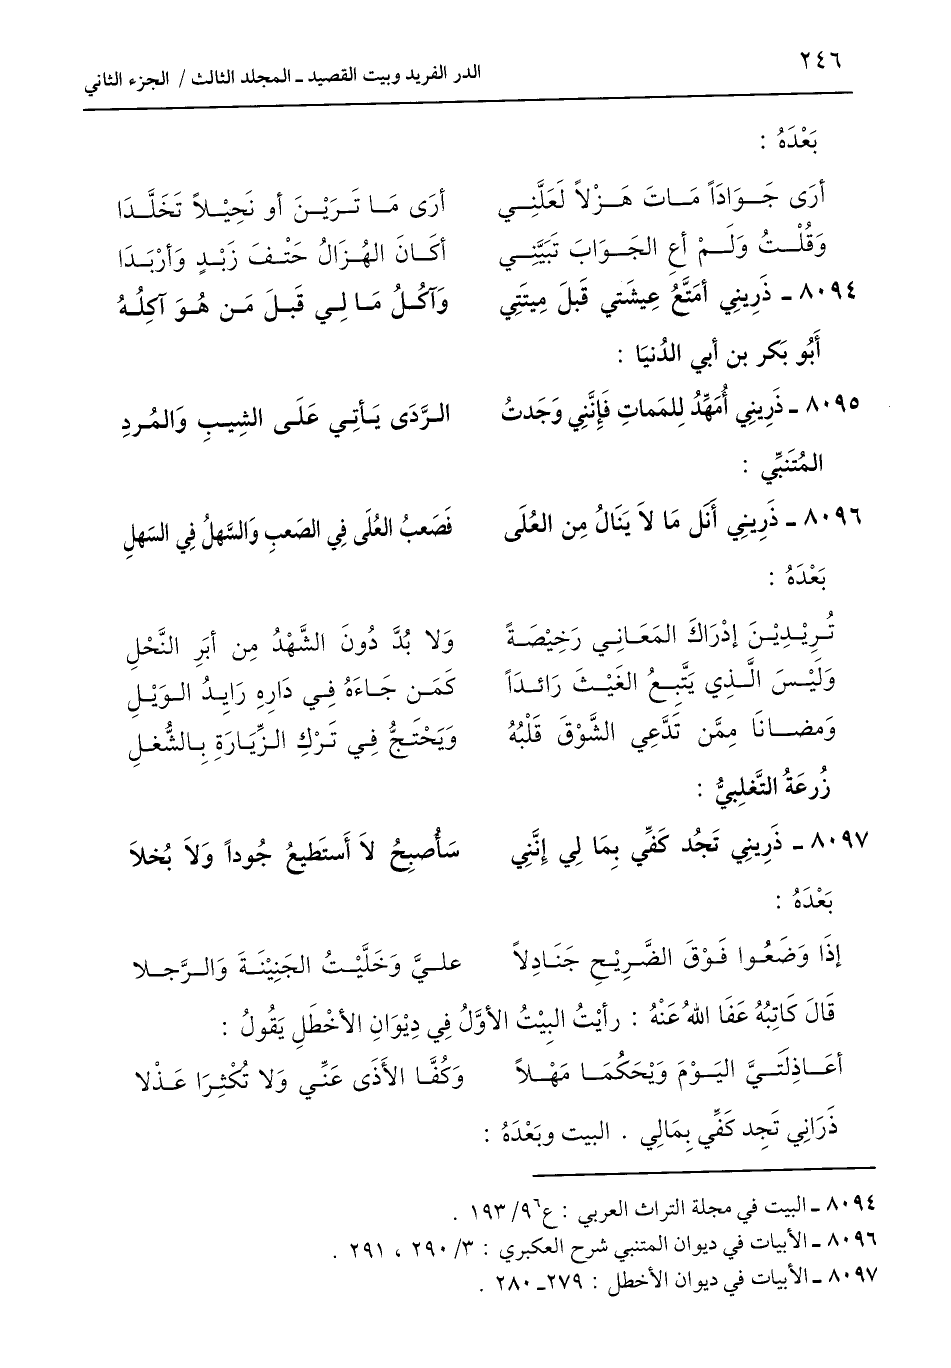 ٢٤٦
الدر الفريد وبيت القصيد ـ المجلد الثالث / الجزء الثاني
بَعْدَهُ :
أرَى جَـوَادَاً مَـاتَ هَـزْلاً لَعَلَّنِـي أرَى مَـا تَـرَيْـنَ أو نَحِيْـلاً تَخَلَّـدَا
وَقُلْـتُ وَلَـمْ أعِ الجَـوابَ تَبَيَّنِـي أكَـانَ الهُـزَالُ حَتْـفَ زَيْـدٍ وَأرْبَـدَا
٨٠٩٤ ـ ذَرِيني أمَتَّعُ عِيشَتي قبلَ مِيتَتِي وَآكُـلُ مَـا لِـي قَبـلَ مَـن هُـوَ آكِلُـهُ
أَبُو بَكر بن أبي الدُنيَا :
٨٠٩٥ ـ ذَرِيني أُمَهِّدُ لِلمَماتِ فَإِنَّنِي وَجَدتُ الـرَّدَى يَـأتِـي عَلَـى الشِيـبِ وَالمُـردِ
المُتَنبِّي :
٨٠٩٦ ـ ذَرِيني أَنَل مَا لاَ يَنَالُ مِن العُلَى فَصَعبُ العُلَى فِي الصَعبِ وَالسَّهلُ فِي السَهلِ
بَعْدَهُ :
تُـرِيْـدِيْـنَ إدْرَاكَ المَعَـانِي رَخِيْصَـةً وَلا بُدَّ دُونَ الشَّهْدُ مِن أبَرِ النَّحْلِ
وَلَيْـسَ الَّـذِي يَتَّبِـعُ الغَيْـثَ رَائِـدَاً كَمَـن جَـاءَهُ فِـي دَارِهِ رَايِـدُ الـوَبْـلِ
وَمضـانَـا مِمَّن تَدَّعِي الشَّوْقَ قَلْبُهُ وَيَحْتَـجُّ فِـي تَـرْكِ الـزِّيَـارَةِ بِـالشُّغـلِ
زُرعَةُ التَّغلِبيُّ :
٨٠٩٧ ـ ذَرِيني تَجُد كَفِّي بِمَا لِي إنَّنِي سَأُصبِحُ لاَ أَستَطيعُ جُوداً وَلاَ بُخلاَ
بَعْدَهُ :
إذَا وَضَعُـوا فَـوْقَ الضَّـرِيْـحِ جَنَـادِلاً علـيَّ وَخَلَّيْـتُ الجَنِيْنَـةَ وَالـرَّجـلا
قَالَ كَاتِبُهُ عَفَا اللهُ عَنْهُ : رأيْتُ البَيْتُ الأوَّلُ فِي دِيْوَانِ الأخْطَلِ يَقُولُ :
أعَـاذِلَتَـيَّ اليَـوْمَ وَيْحَكُمَـا مَهْـلاً وَكُفَّـا الأذَى عَنِّـي وَلا تُكْثِـرَا عَـذْلا
ذَرَانِي تَجِد كَفِّي بِمَالِي . البيت وبَعْدَهُ :
٨٠٩٤ ـ البيت في مجلة التراث العربي : ع٩٦/ ١٩٣ .
٨٠٩٦ ـ الأبيات في ديوان المتنبي شرح العكبري : ٣/ ٢٩٠ ، ٢٩١ .
٨٠٩٧ ـ الأبيات في ديوان الأخطل : ٢٧٩ـ ٢٨٠ .